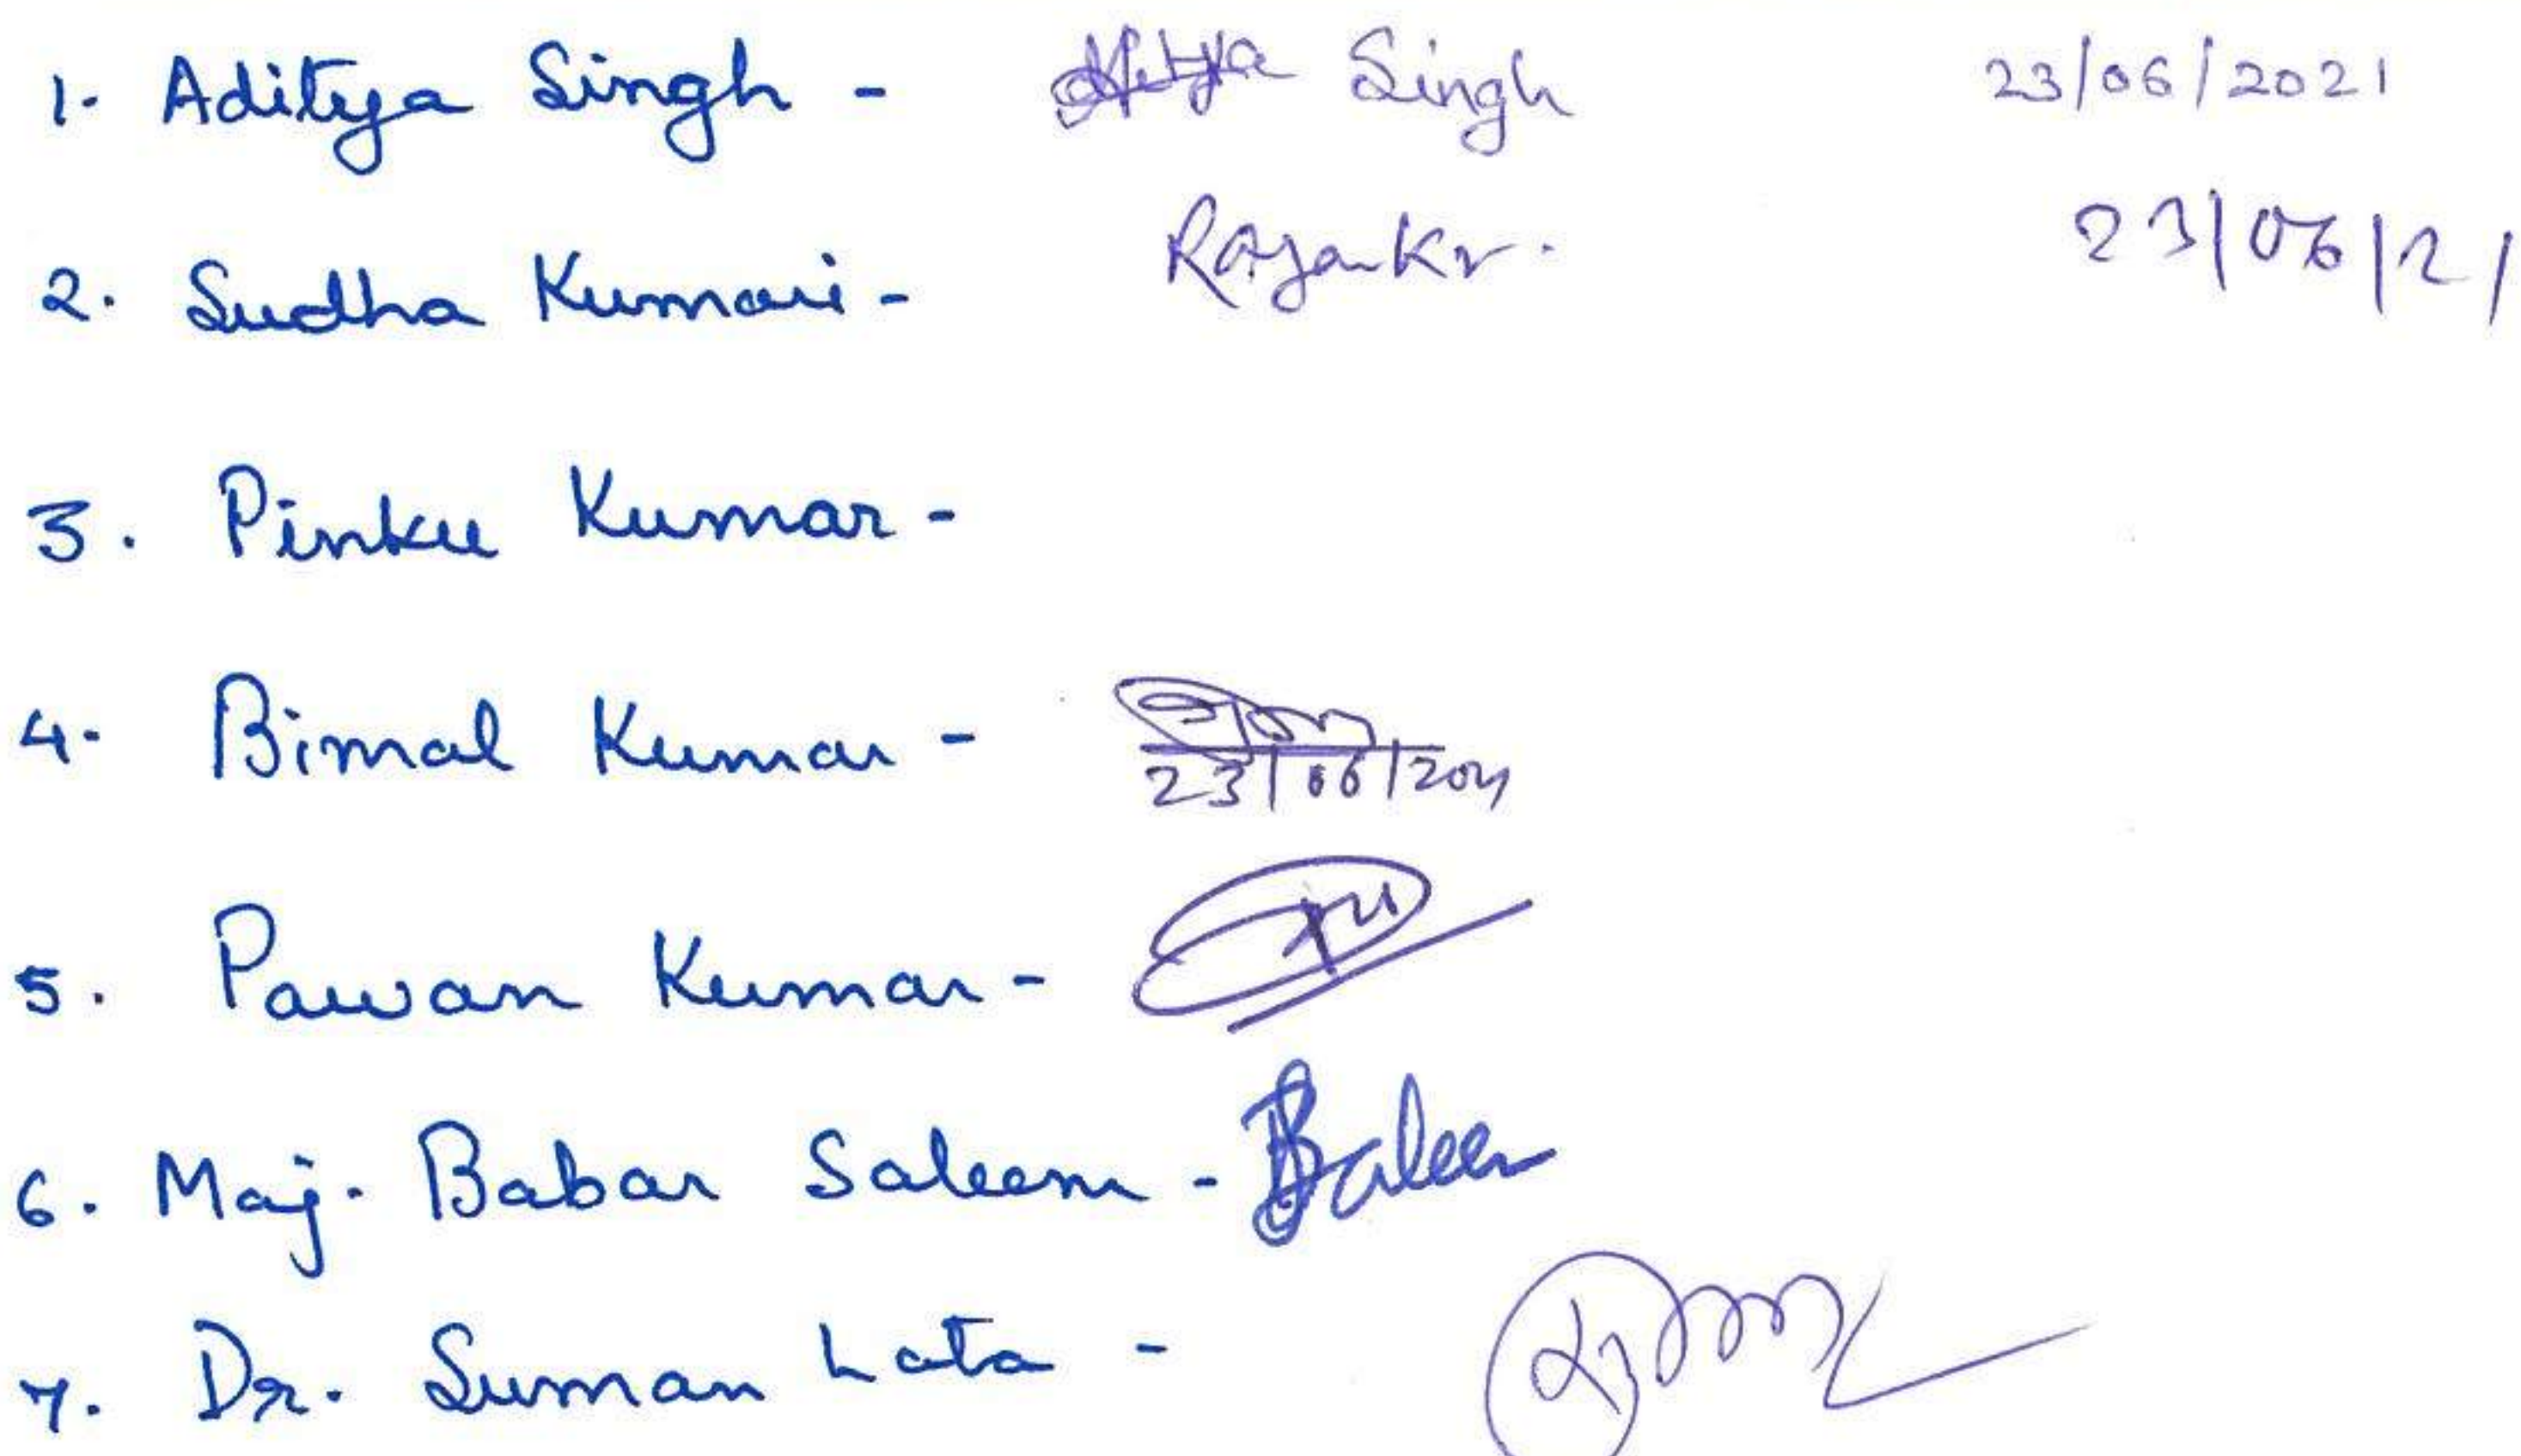 1. Aditya Singh - Aditya Singh 23/06/2021
2. Sudha Kumari - Rajan Kr. 23/06/21
3. Pinku Kumar -
4. Bimal Kumar -
23/06/2021
5. Pawan Kumar -
6. Maj. Babar Saleem - BSaleem
7. Dr. Suman Lata -